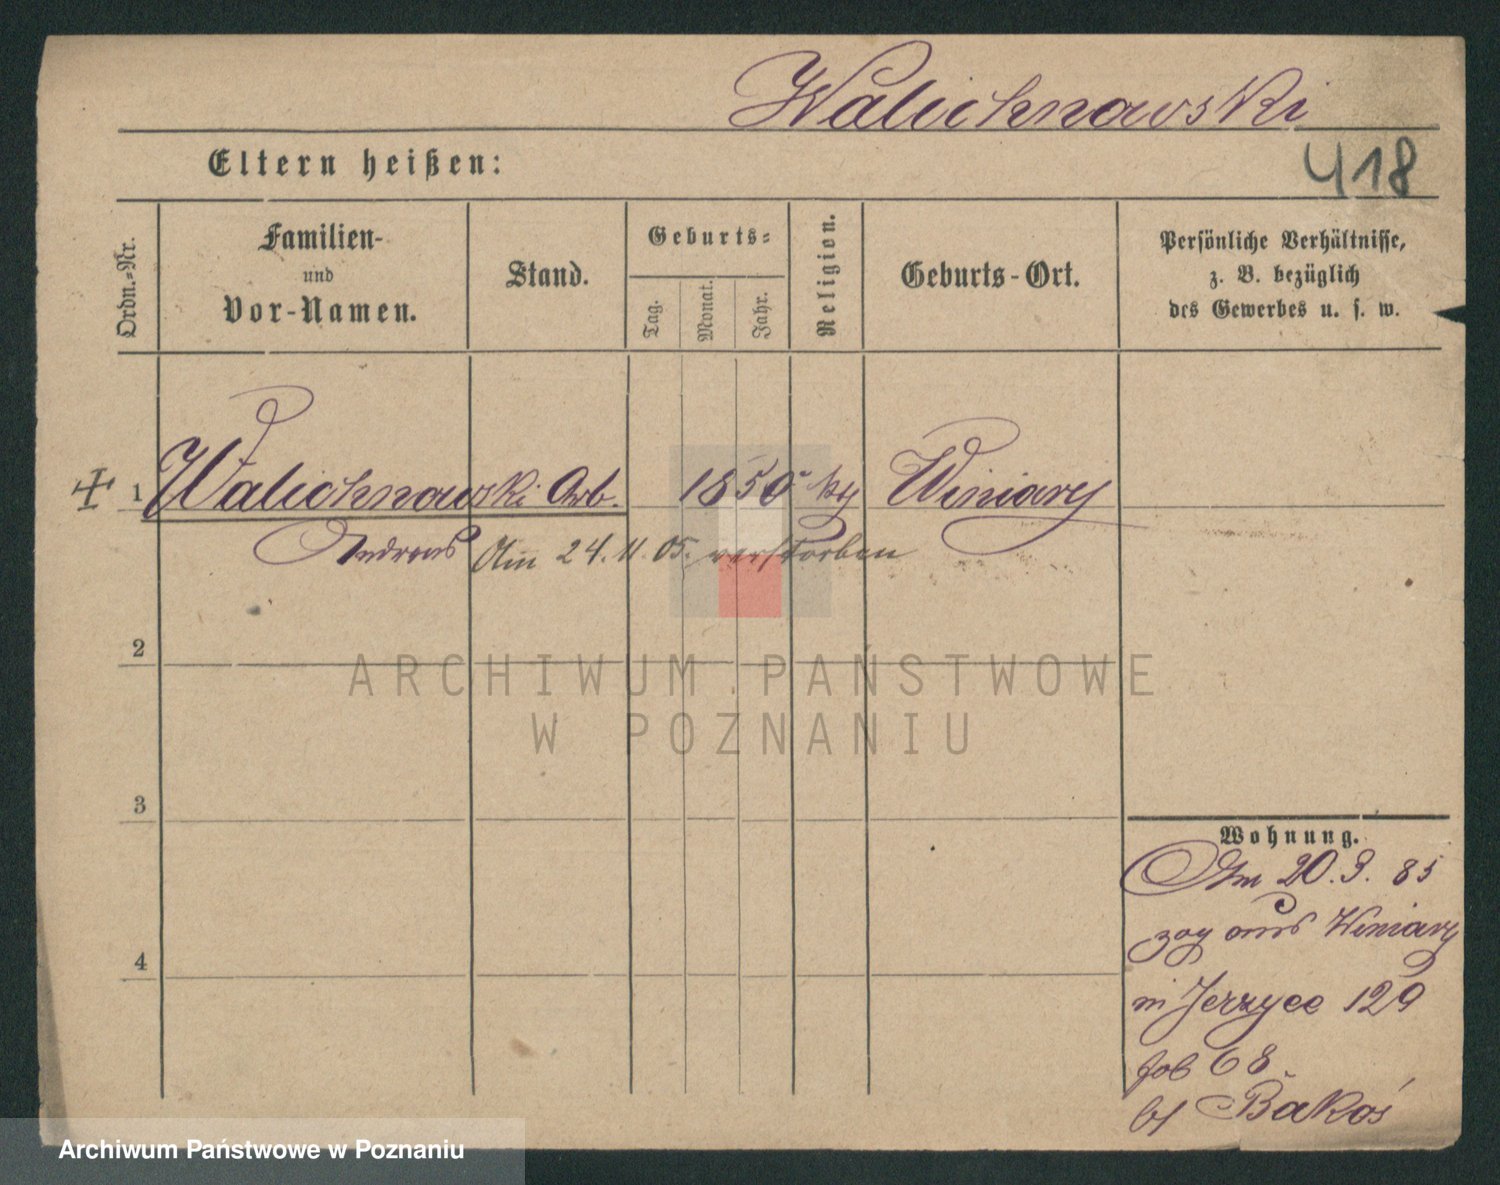 Walichnowski
Eltern heißen:
418
Ordn.-Nr.
Familien-
und
Vor-Namen.
Stand.
Geburts-
Tag.
Monat.
Jahr.
Religion.
Geburts-Ort.
Persönliche Verhältnisse,
z. B. bezüglich
des Gewerbes u. s. w.
1 Walichnowski Arb. 1850 Winiary
Andreas Am 24. 11. 05. verstorben
2
ARCHIWUM PAŃSTWOWE
W POZNANIU
3
Wohnung.
Am 20. 3. 85
zog aus Winiary
n Jerzyce 129
68
bei Bakoś
4
Archiwum Państwowe w Poznaniu